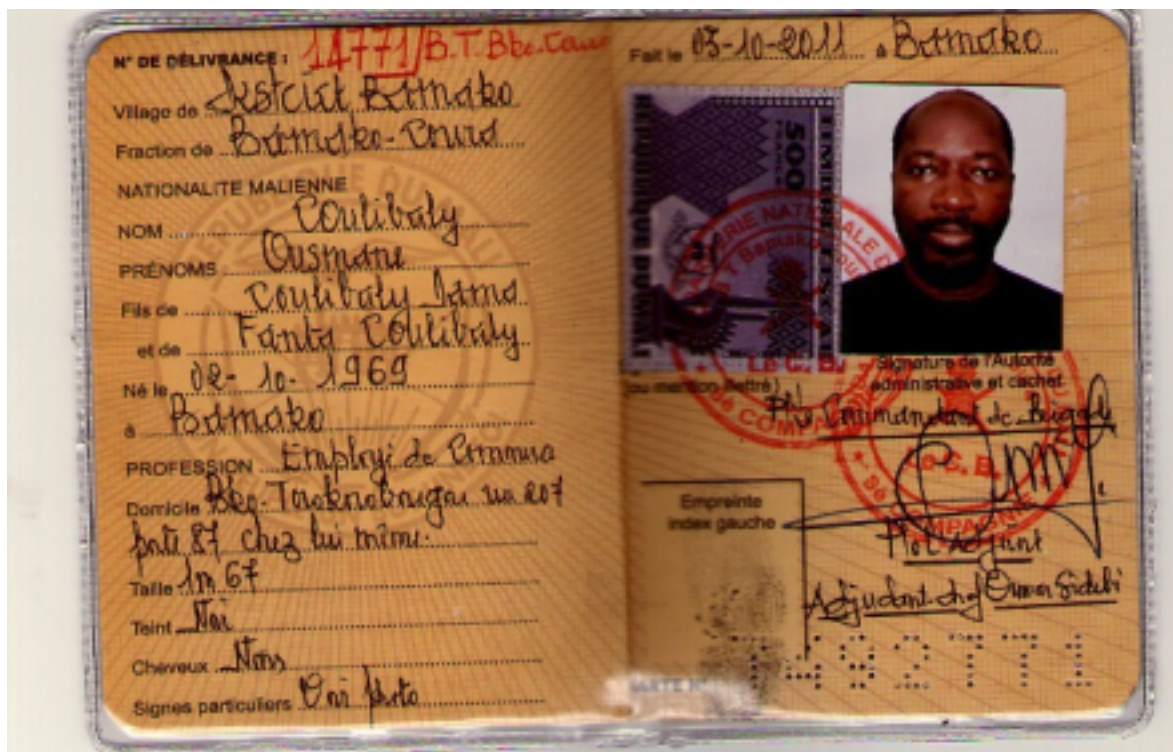 N° DE DÉLIVRANCE : 14771/B.T.Bko.Coura
Village de District Bamako
Fraction de Bamako-Coura
NATIONALITE MALIENNE
NOM Coulibaly
PRÉNOMS Ousmane
Fils de Coulibaly
et de Fanta Coulibaly
Né le 02-10-1969
à Bamako
PROFESSION Employé de
Domicile Bko- rue 207
porte 87 chez lui même.
Taille 1m 67
Teint Noir
Cheveux Noirs
Signes particuliers photo
Fait le 03-10-2011 à Bamako
REPUBLIQUE DU MALI
500
Le C. B.
(ou mention illettré)
Signature de l'Autorité
administrative et cachet
Commandant de Brigade
Le C. B.
COMPAGNIE
Empreinte
index gauche
Adjudant-chef Oumar Sidibé